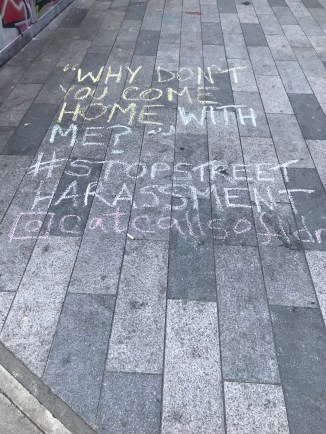 "WHY DON'T
YOU COME
HOME WITH
ME?"
#STOPSTREET
HARASSMENT
@catcallsofldn